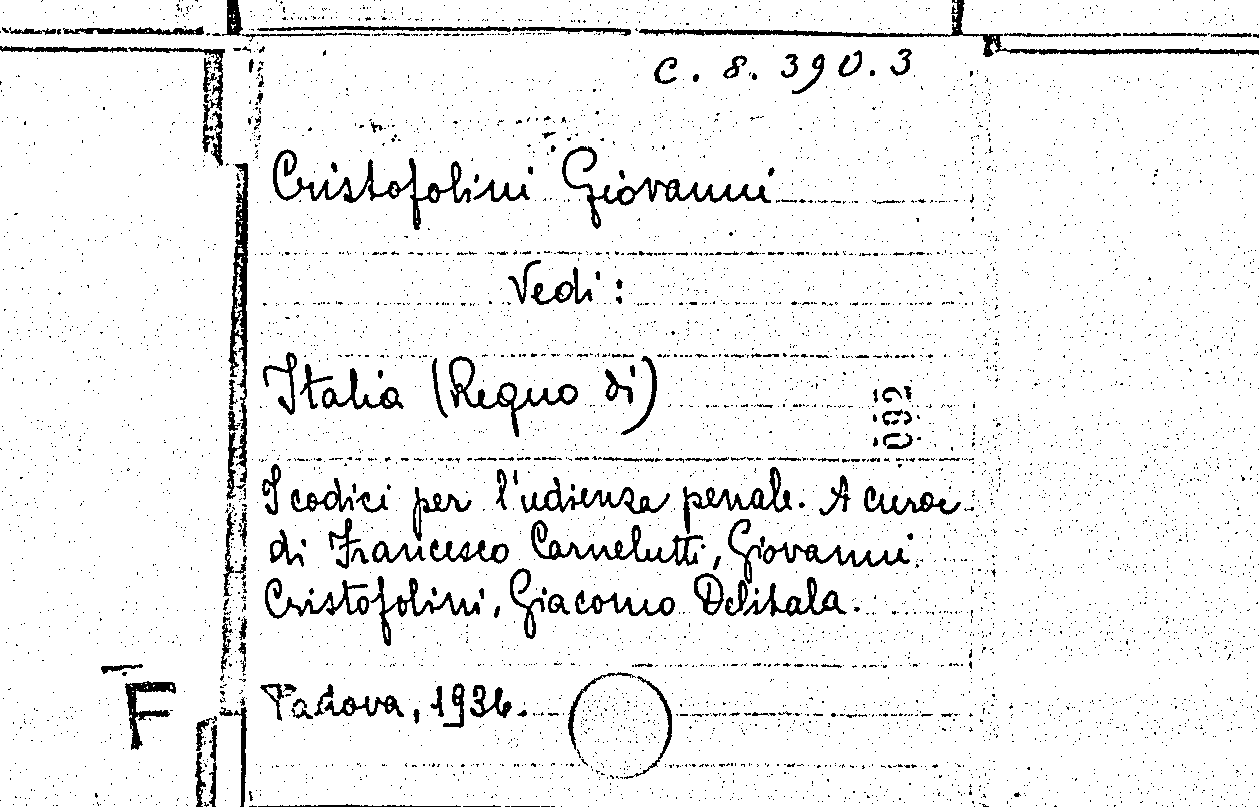 C. 8. 390. 3
Cristofolini Giovanni
Vedi:
Italia (Regno di)
092
I codici per l'udienza penale. A cura
di Francesco Carnelutti, Giovanni
Cristofolini, Giacomo Delitala.
F
Padova, 1936.